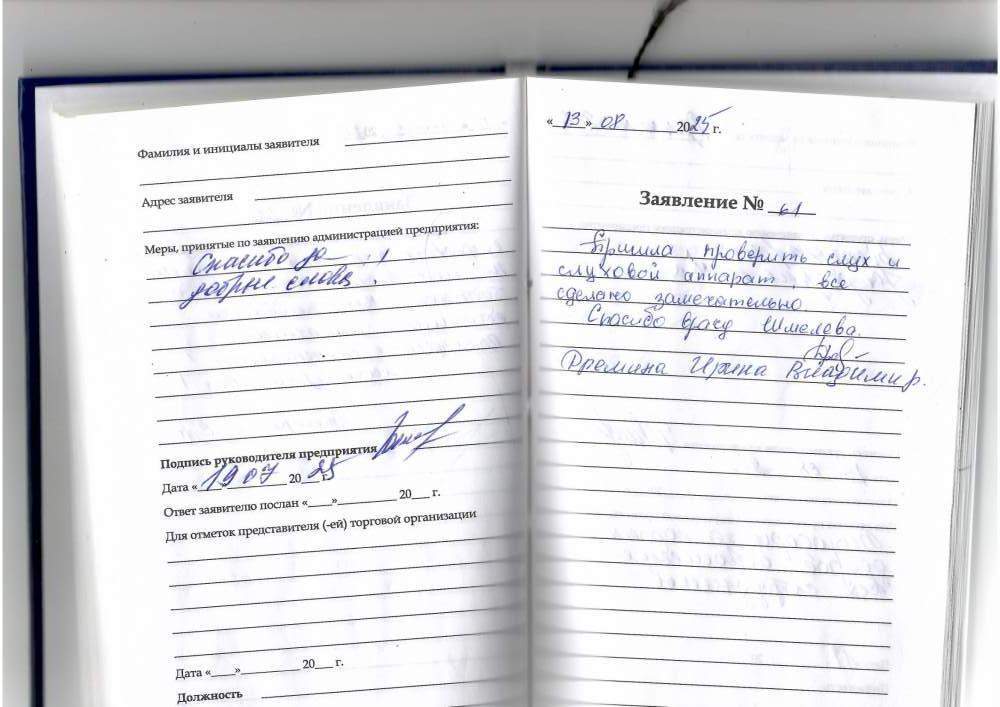 Фамилия и инициалы заявителя
Адрес заявителя
Меры, принятые по заявлению администрацией предприятия:
Спасибо за
добрые слова !
Подпись руководителя предприятия
Дата « 19 07 20 25 г.
Ответ заявителю послан «___»________ 20__ г.
Для отметок представителя (-ей) торговой организации
Дата «___»________ 20__ г.
Должность
« 13 » 08 2025 г.
Заявление № 61
Пришла проверить слух и
слуховой аппарат, все
сделано замечательно.
Спасибо врачу Шмелёва.
Ирина Владимир.